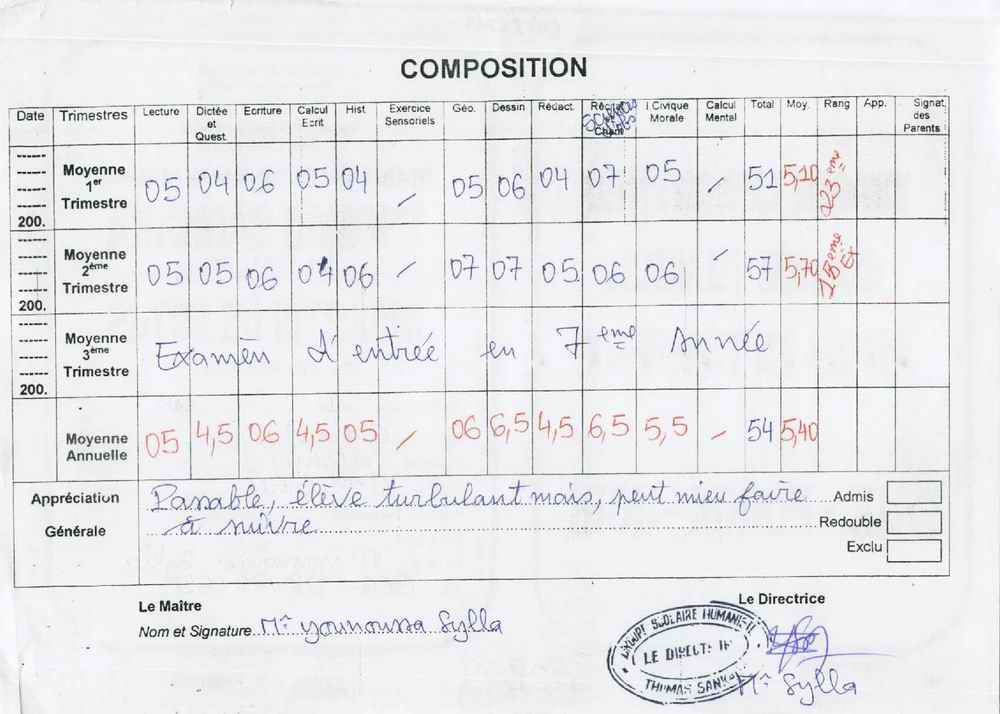 COMPOSITION
Date Trimestres Lecture Dictée et Quest Ecriture Calcul Ecrit Hist Exercice Sensoriels Géo. Dessin Rédact. Récitat Chant I.Civique Morale Calcul Mental Total Moy. Rang App. Signat. des Parents
------ ------ ------ ------ 200. Moyenne 1er Trimestre 05 04 06 05 04 / 05 06 04 07 05 / 51 5,10 23ème
------ ------ ------ ------ 200. Moyenne 2ème Trimestre 05 05 06 04 06 / 07 07 05 06 06 / 57 5,70 15ème Ex
------ ------ ------ ------ 200. Moyenne 3ème Trimestre Examen d'entrée en 7eme Année
Moyenne Annuelle 05 4,5 06 4,5 05 / 06 6,5 4,5 6,5 5,5 / 54 5,40
Appréciation Passable, élève turbulant mais, peut mieu faire Admis
Générale à suivre Redouble
Exclu
Le Maître Le Directrice
Nom et Signature Mr Younoussa Sylla
GROUPE SCOLAIRE
LE DIRECT
THOMAS
Mr Sylla